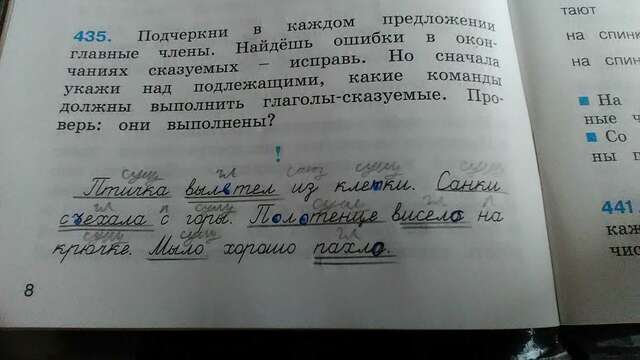 435. Подчеркни в каждом предложении
главные члены. Найдёшь ошибки в окон-
чаниях сказуемых – исправь. Но сначала
укажи над подлежащими, какие команды
должны выполнить глаголы-сказуемые. Про-
верь: они выполнены?
!
сущ гл сущ сущ
Птичка вылетел из клетки. Санки
гл п сущ сущ гл п
съехала с горы. Полотенце висело на
сущ сущ гл
крючке. Мыло хорошо пахло.
8
тают
на спинк
на спин
На
ные ч
Со
ны г
441
каж
чис